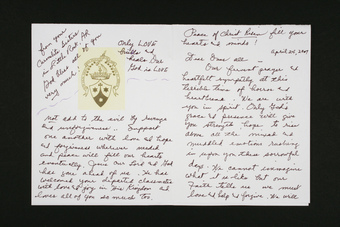 from your
Carmelite Sisters
in Little Rock, AR
God bless all of you
very much!
Only LOVE
builds and
heals Our
God is LOVE
Not add to the evil by revenge
and unforgiveness. Support
one another with love and hope
and forgiveness wherever needed
and peace will fill our hearts
eventually. Jesus our Lord and God
has gone ahead of us. He has
welcomed your departed classmates
with love and joy in His Kingdom and
loves all of you so much too.
Peace of Christ Risen fill your
hearts and minds!
April 24, 2007
Dear Ones all —
Our fervent prayer and
heartfelt sympathy at this
terrible time of horror and
heartbreak. We are with
you in spirit. Only God's
grace and presence will give
you strength and hope to rise
above all the mixed and
muddled emotions rushing
in upon you these sorrowful
days. We cannot imagine
what it is like but our
Faith tells us we must
love and help and forgive. We will